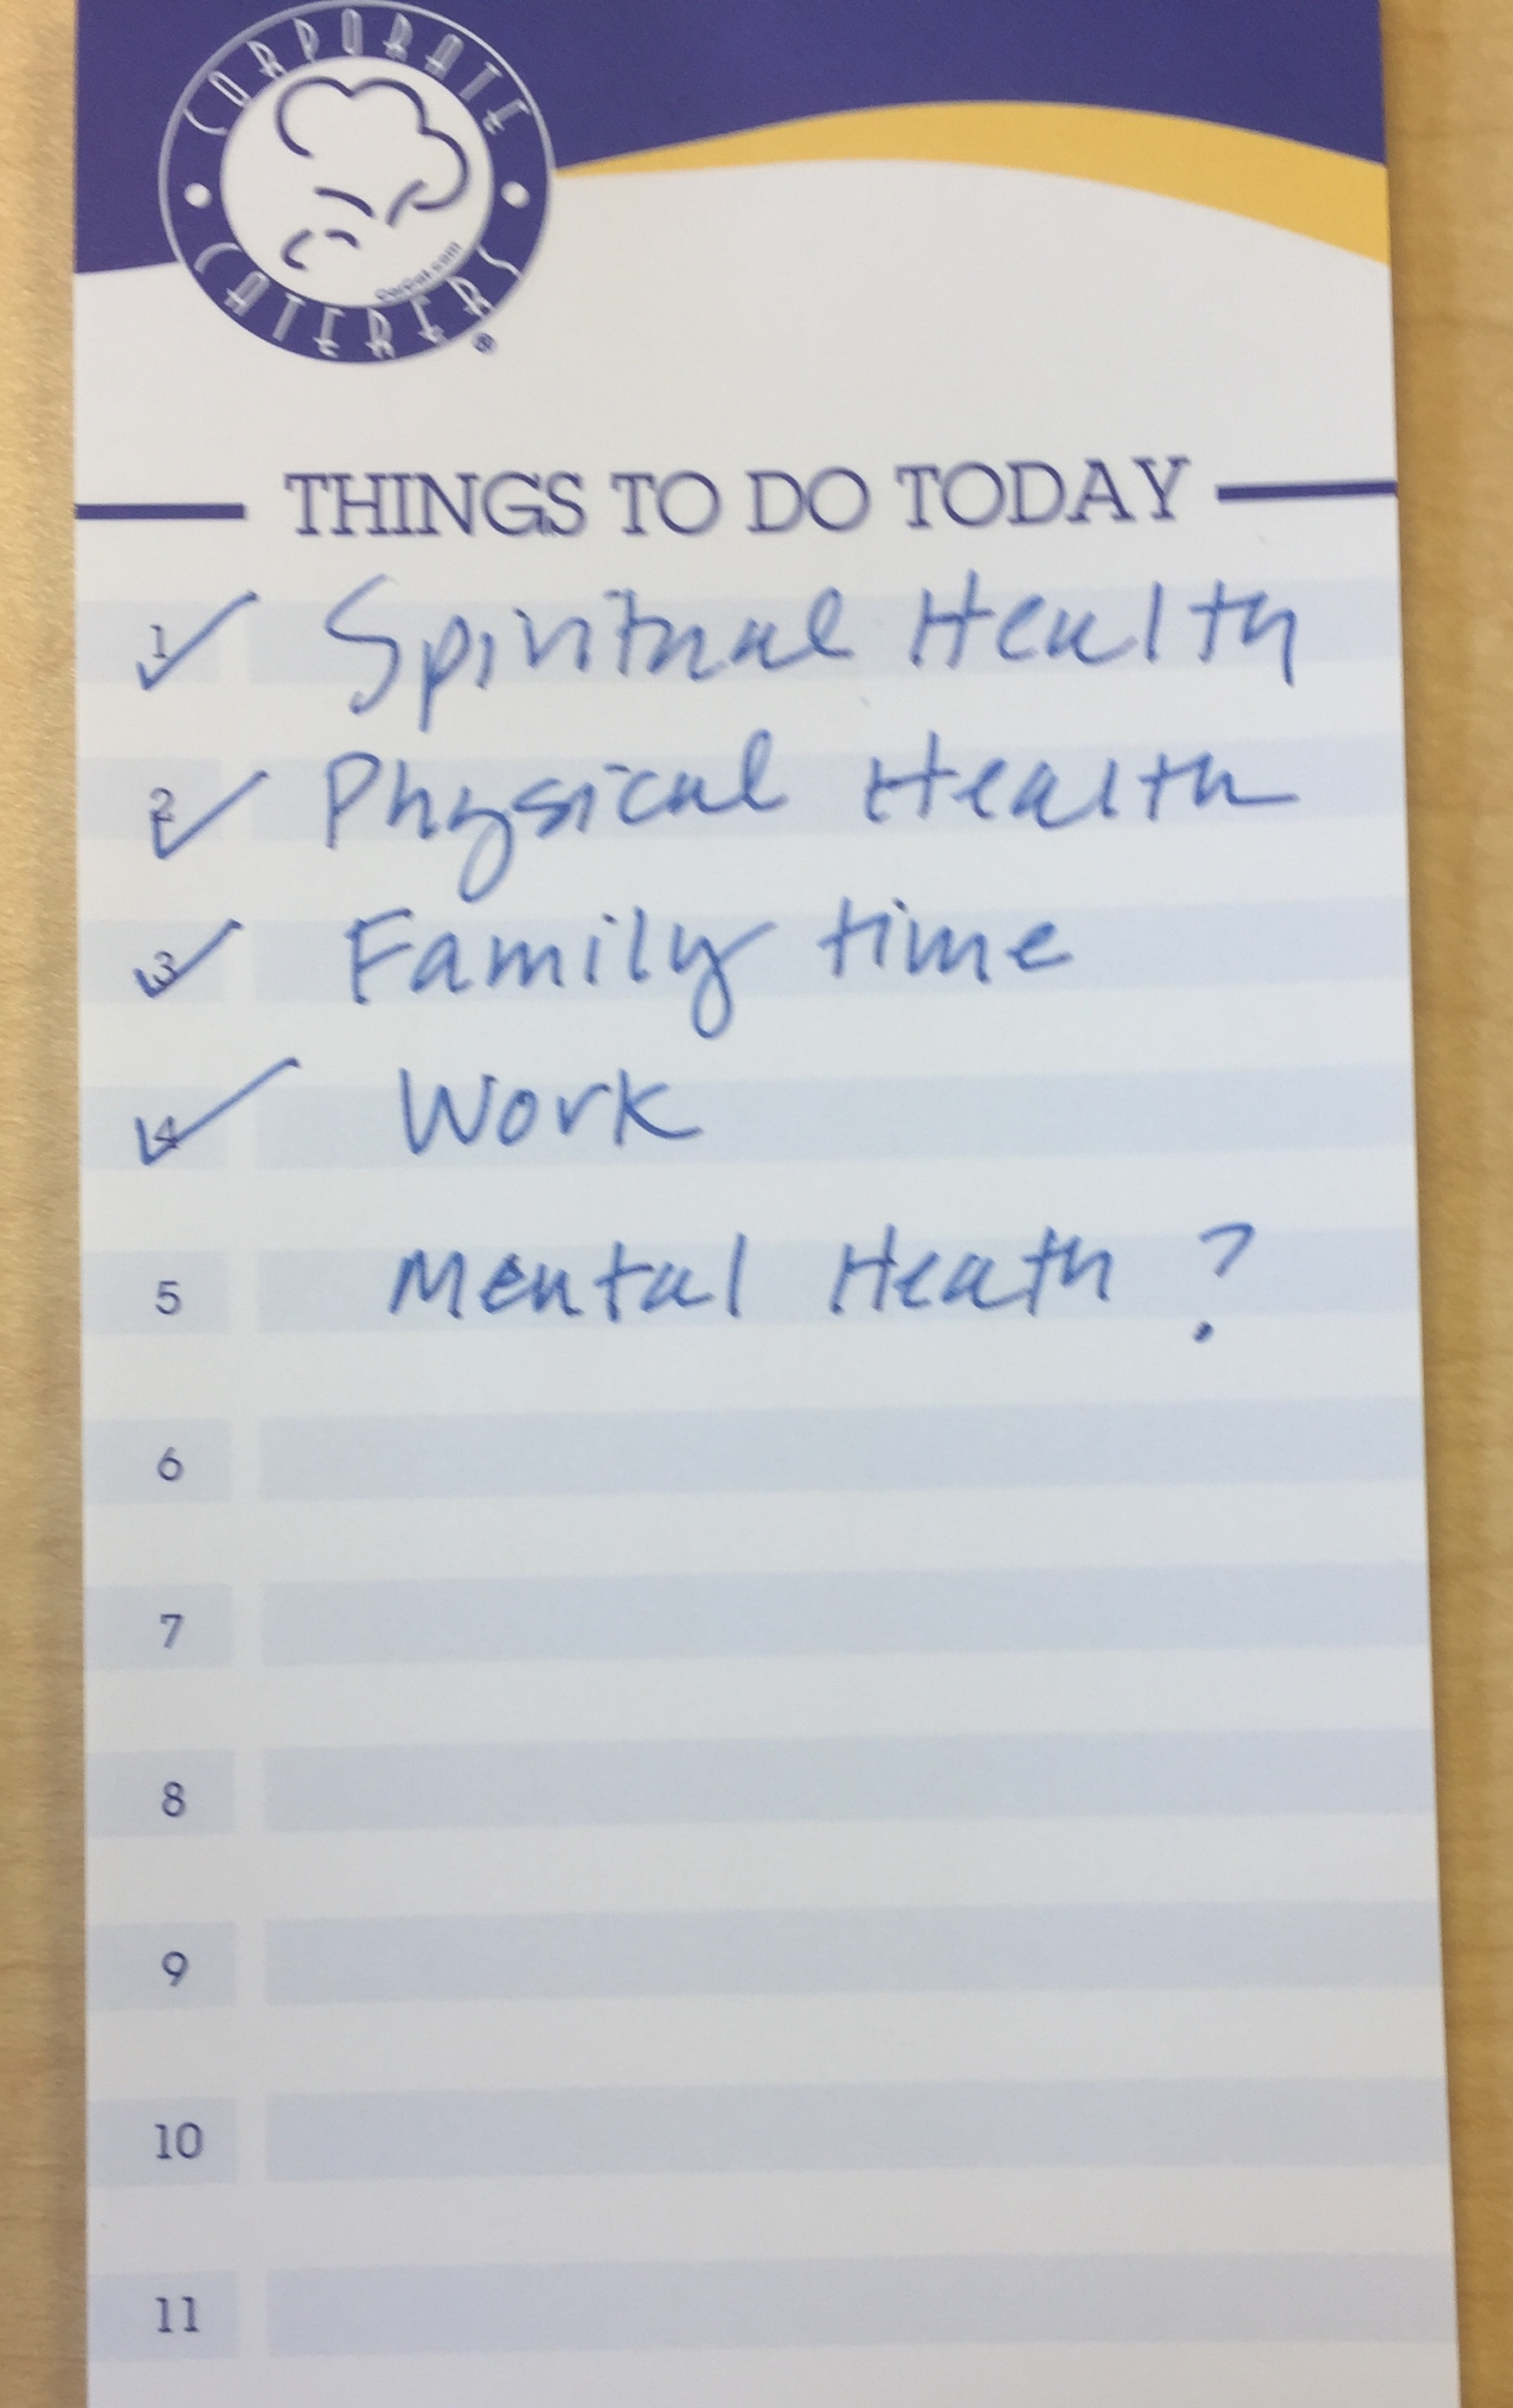 CORPORATE
CorpCat.com
CATERERS®
THINGS TO DO TODAY
1 Spiritual Health
2 Physical Health
3 Family time
4 Work
5 Mental Heath ?
6
7
8
9
10
11